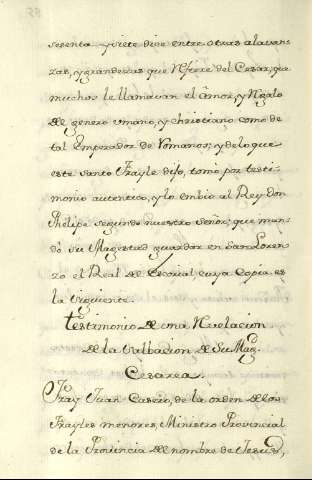 sesenta y siete dice entre otras alavan
zas, y grandezas que refiere del Cesar, que
muchos le llamavan el Amor, y Regalo
del genero umano, y christiano como de
tal Emperador de Romanos; y de lo que
este santo Frayle dijo, tomò por testi-
monio autentico, y lo embiò al Rey don
Phelipe segundo nuestro Señor; que man-
dò su Magestad guardar en San Loren-
zo el Real de Escorial cuya Copia es
la siguiente.
Testimonio de una Revelacion
de la Salbacion de Su Mag.
Cesarea.
Fray Juan de la orden de los
Frayles menores, Ministro Provincial
de la Provincia del nombre de Jesus,